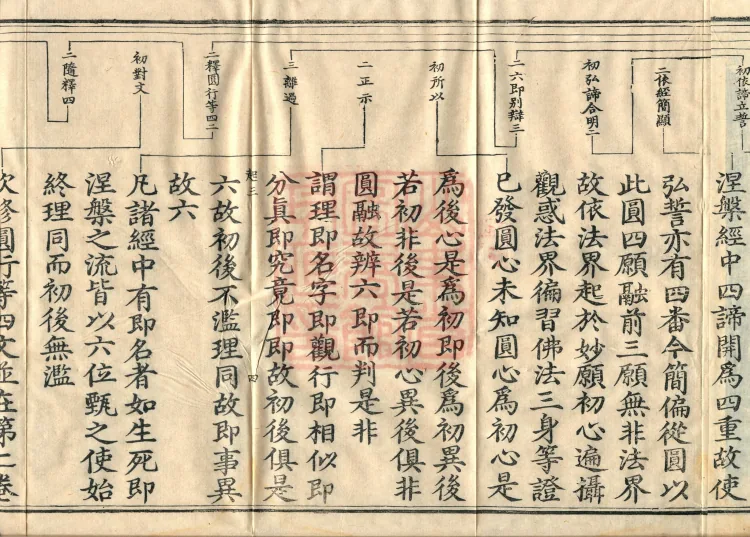 初依諦立誓
二依經簡顯
初弘諦合明二
二六即別辯三
初所以
二正示
三離過
二釋圓行等四二
初對文
二隨釋四
涅槃經中四諦開為四重故使
弘誓亦有四番今簡偏從圓以
此圓四願融前三願無非法界
故依法界起於妙願初心遍攝
觀惑法界徧習佛法三身等證
已發圓心未知圓心為初心是
為後心是為初即後為初異後
若初非後是若初心異後俱非
圓融故辨六即而判是非
謂理即名字即觀行即相似即
分眞即究竟即即故初後俱是
起三
四
六故初後不濫理同故即事異
故六
凡諸經中有即名者如生死即
涅槃之流皆以六位甄之使始
終理同而初後無濫
次修圓行等四文並在第二卷